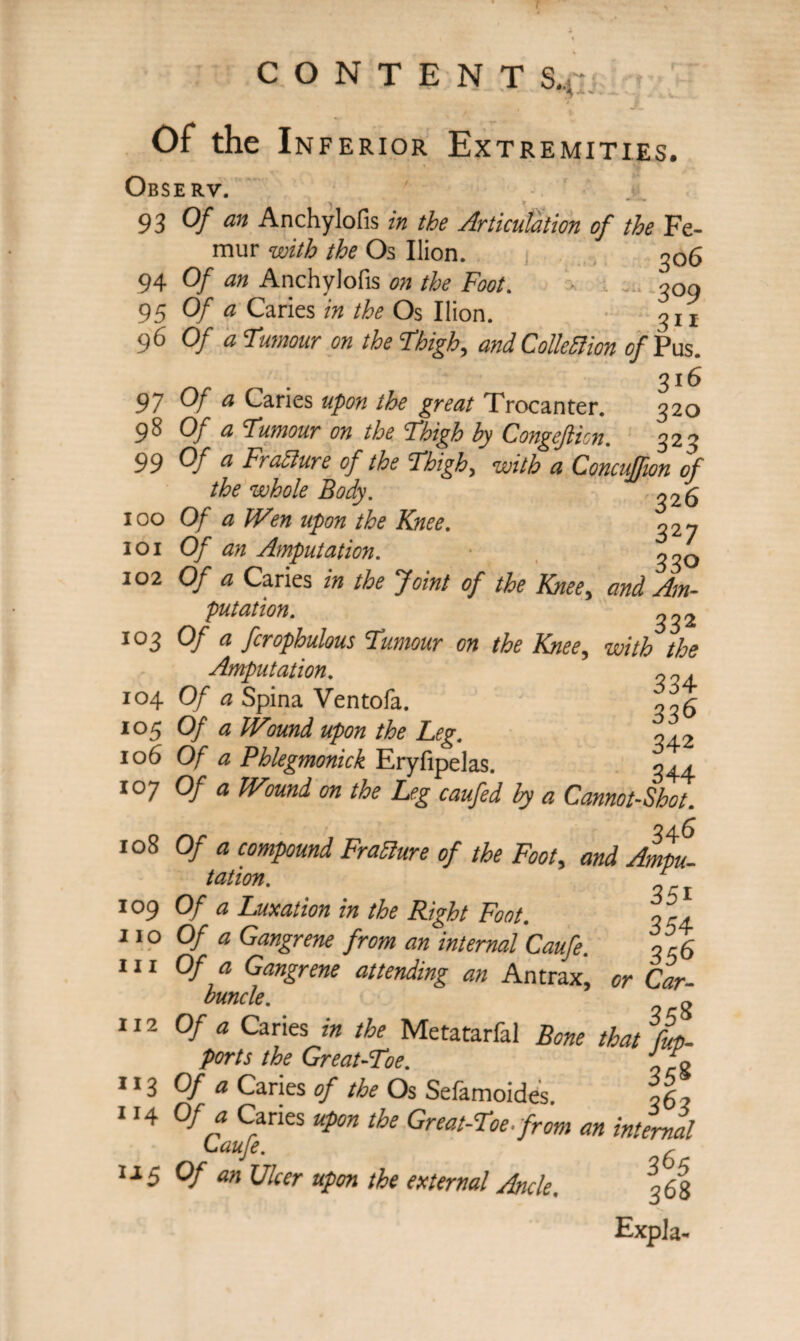 CONTENTS.
Of the INFERIOR EXTREMITIES.
OBSERV.
93 Of an Anchyloſis in the Articulation of the Fe-
mur with the Os Ilion. 306
94 Of an Anchyloſis on the Foot. 309
95 Of a Caries in the Os Ilion. 311
96 Of a Tumour on the Thigh, and Collection of Pus.
316
97 Of a Caries upon the great Trocanter. 320
98 Of a Tumour on the Thigh by Congeſtion. 323
99 Of a Fracture of the Thigh, with a Concuſſion of
the whole Body. 326
100 Of a Wen upon the Knee. 327
101 Of an Amputation. 330
102 Of a Caries in the Joint of the Knee, and Am-
putation. 332
103 Of a ſcrophulous Tumour on the Knee, with the
Amputation. 334
104 Of a Spina Ventoſa. 336
105 Of a Wound upon the Leg. 342
106 Of a Phlegmonick Eryſipelas. 344
107 Of a Wound on the Leg cauſed by a Cannot-Shot.
346
108 Of a compound Fracture of the Foot, and Ampu-
tation. 351
109 Of a Luxation in the Right Foot. 354
110 Of a Gangrene from an internal Cauſe. 356
111 Of a Gangrene attending an Antrax, or Car-
buncle. 358
112 Of a Caries in the Metatarſal Bone that ſup-
ports the Great-Toe. 358
113 Of a Caries of the Os Seſamoidés. 363
114 Of a Caries upon the Great-Toe from an internal
Cauſe. 365
115 Of an Ulcer upon the external Ancle. 368
Expla-